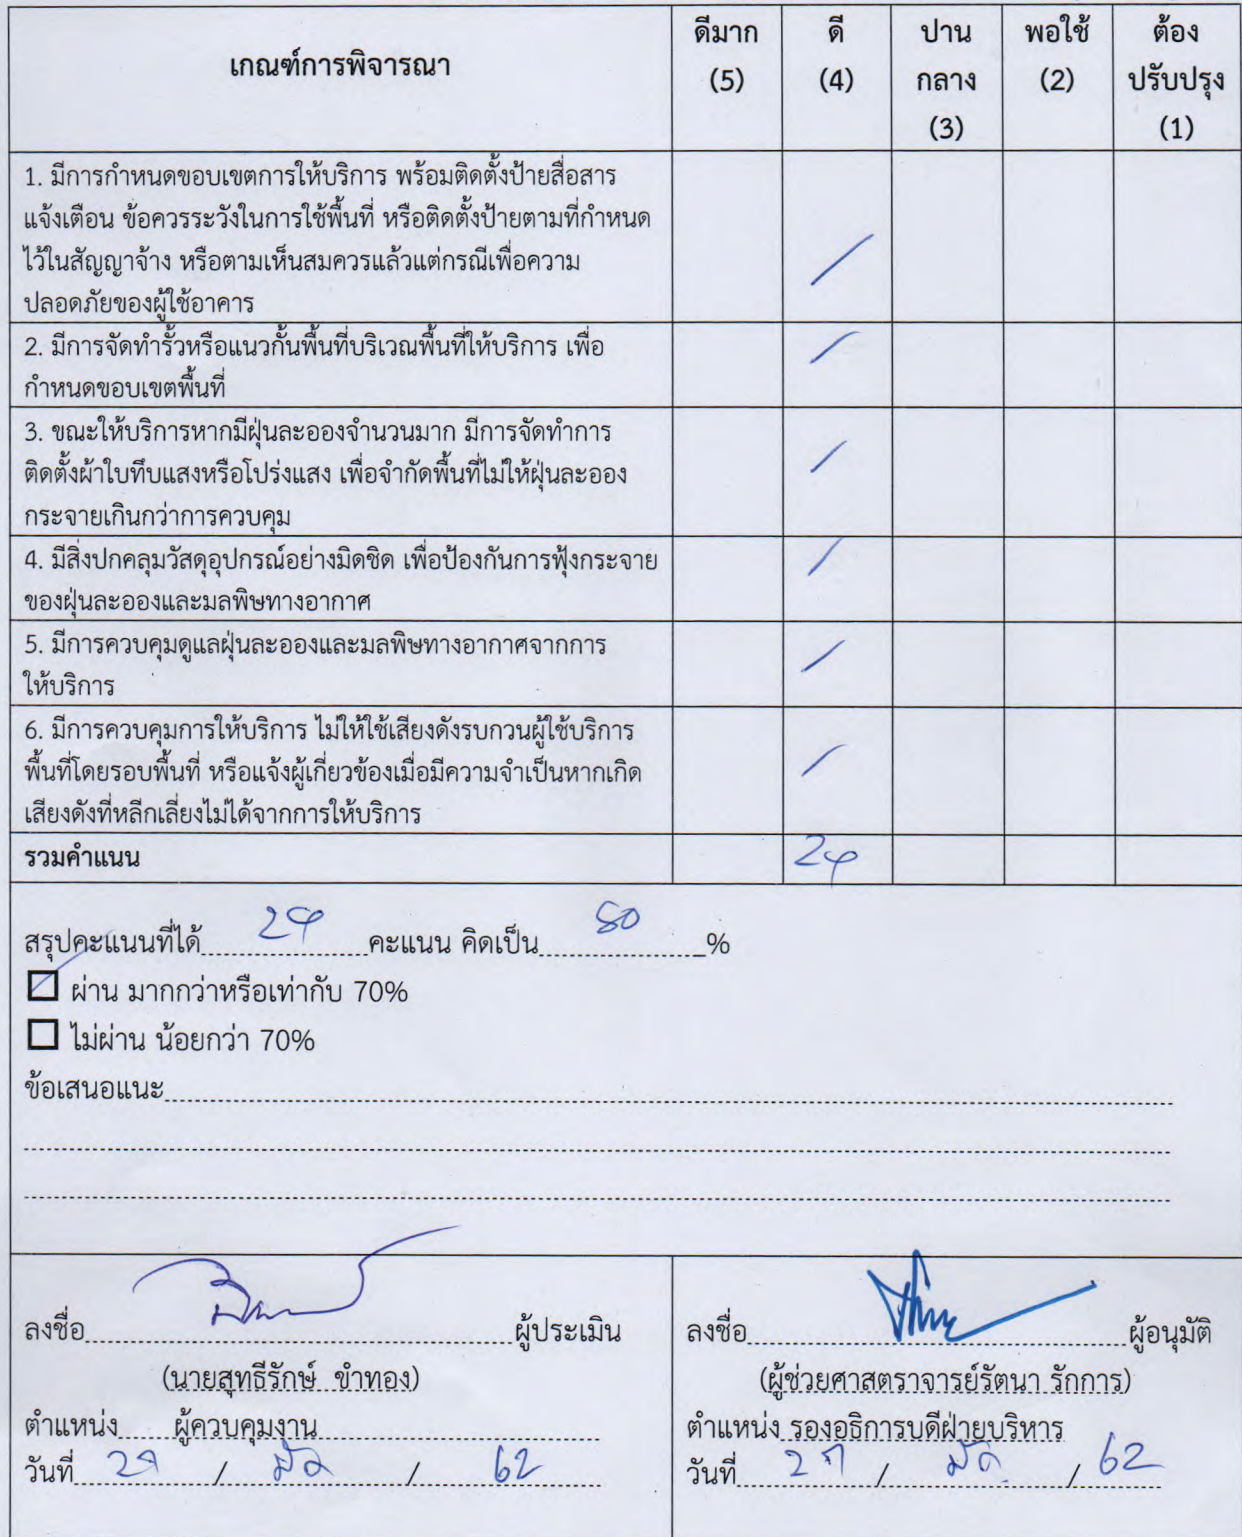 เกณฑ์การพิจารณา
ดีมาก
(5)
ดี
(4)
ปาน
กลาง
(3)
พอใช้
(2)
ต้อง
ปรับปรุง
(1)
1. มีการกำหนดขอบเขตการให้บริการ พร้อมติดตั้งป้ายสื่อสาร
แจ้งเตือน ข้อควรระวังในการใช้พื้นที่ หรือติดตั้งป้ายตามที่กำหนด
ไว้ในสัญญาจ้าง หรือตามเห็นสมควรแล้วแต่กรณีเพื่อความ
ปลอดภัยของผู้ใช้อาคาร
2. มีการจัดทำรั้วหรือแนวกั้นพื้นที่บริเวณพื้นที่ให้บริการ เพื่อ
กำหนดขอบเขตพื้นที่
3. ขณะให้บริการหากมีฝุ่นละอองจำนวนมาก มีการจัดทำการ
ติดตั้งผ้าใบทึบแสงหรือโปร่งแสง เพื่อจำกัดพื้นที่ไม่ให้ฝุ่นละออง
กระจายเกินกว่าการควบคุม
4. มีสิ่งปกคลุมวัสดุอุปกรณ์อย่างมิดชิด เพื่อป้องกันการฟุ้งกระจาย
ของฝุ่นละอองและมลพิษทางอากาศ
5. มีการควบคุมดูแลฝุ่นละอองและมลพิษทางอากาศจากการ
ให้บริการ
6. มีการควบคุมการให้บริการ ไม่ให้ใช้เสียงดังรบกวนผู้ใช้บริการ
พื้นที่โดยรอบพื้นที่ หรือแจ้งผู้เกี่ยวข้องเมื่อมีความจำเป็นหากเกิด
เสียงดังที่หลีกเลี่ยงไม่ได้จากการให้บริการ
รวมคำแนน 24
สรุปคะแนนที่ได้ 24 คะแนน คิดเป็น 80 %
ผ่าน มากกว่าหรือเท่ากับ 70%
ไม่ผ่าน น้อยกว่า 70%
ข้อเสนอแนะ
ลงชื่อ ผู้ประเมิน
(นายสุทธีรักษ์ ขำทอง)
ตำแหน่ง ผู้ควบคุมงาน
วันที่ / / 62
ลงชื่อ ผู้อนุมัติ
(ผู้ช่วยศาสตราจารย์รัตนา รักการ)
ตำแหน่ง รองอธิการบดีฝ่ายบริหาร
วันที่ / / 62